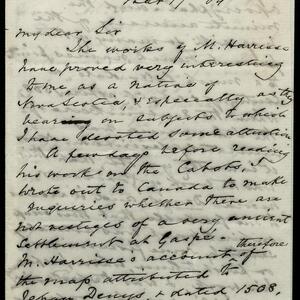 My dear Sir
The works of M. Harrisse
have proved very interesting
to me, as a native of
Nova Scotia, & especially as they
bearing on subjects to which
I have devoted some attention
A few days before reading
his work on the Cabots, I
wrote out to Canada to make
inquiries whether there are
not vestiges of a very ancient
Settlement at Gaspé.
therefore
M. Harrisse's account of
the map attributed to
Jehan Denys, & dated 1508,